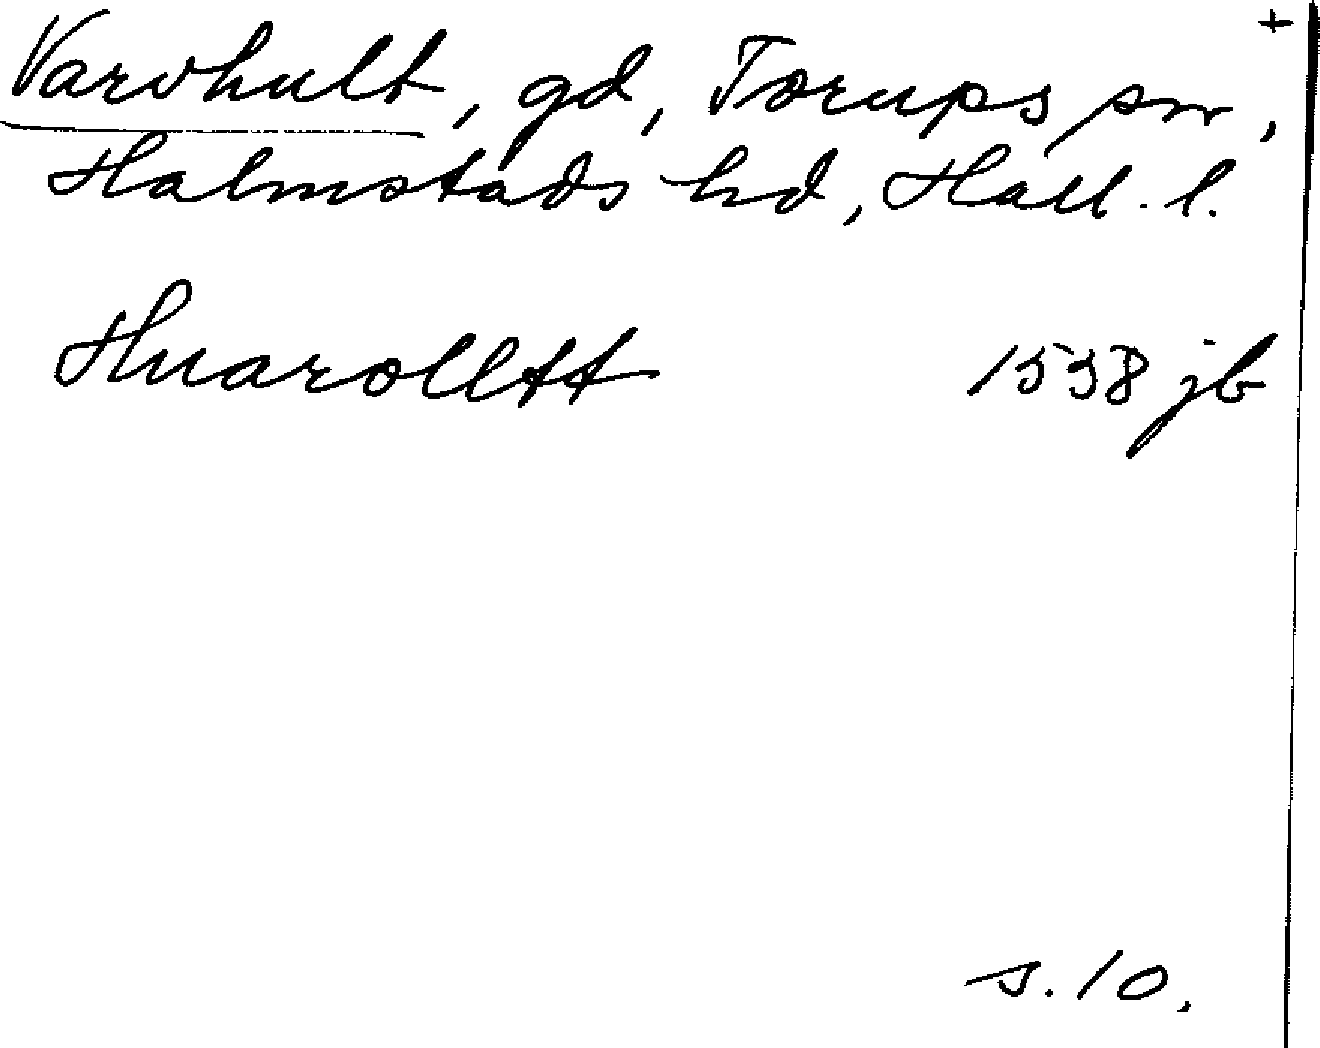 +
Varvhult, gd, Torups sn,
Halmstads hd, Hall. l.
Huarolltt 1558 jb
s. 10.